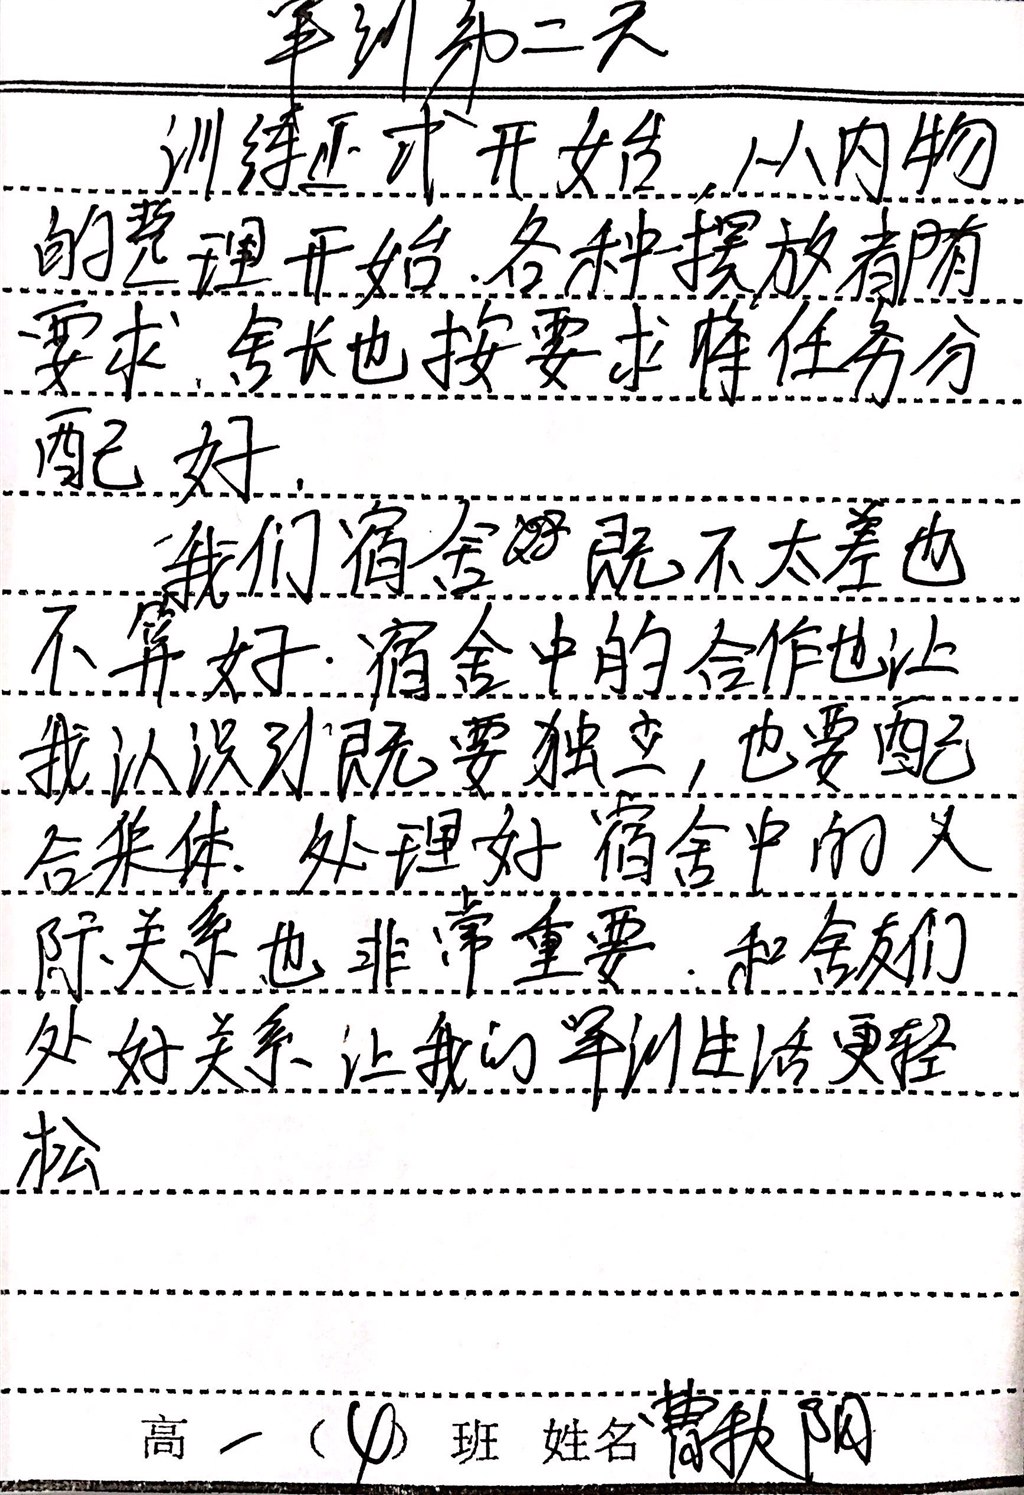 军训第二天
训练正式开始,从内物
的整理开始.各种摆放都有
要求.舍长也按要求将任务分
配好.
我们宿舍既不太差也
不算好.宿舍中的合作也让
我认识到既要独立,也要配
合集体.处理好宿舍中的人
际关系也非常重要.和舍友们
处好关系让我的军训生活更轻
松
高一(4)班 姓名曹秋阳